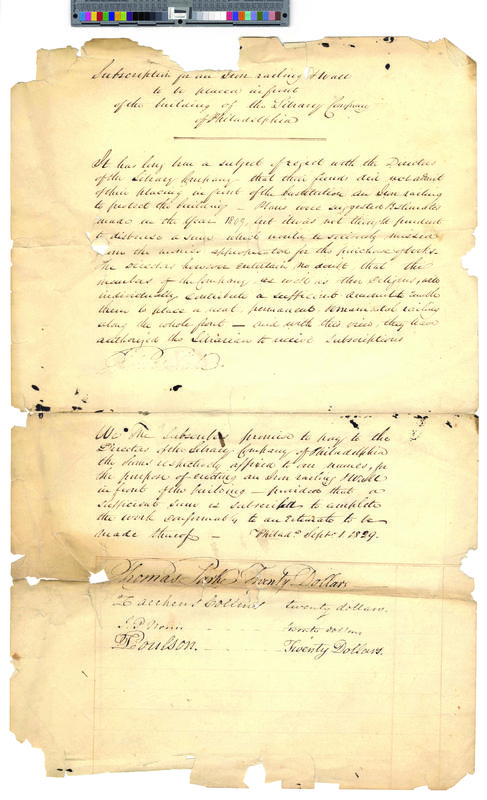 Subscription for an Iron railing & Wall
to be placed in front
of the building of the Library Company
of Philadelphia
It has long been a subject of regret with the Directors
of the Library Company that their funds did not admit
of their placing in front of the Institution an Iron railing
to protect the building – Plans were suggested & Estimates
made in the Year 1809, but it was not thought prudent
to disburse a sum which would so seriously
the monies appropriated for the purchase of books.
The Directors however entertain no doubt, that the
members of the Company as well as other Citizens, will
individually contribute a sufficient amount to enable
them to place a neat, permanent & ornamental railing
along the whole front – and with this view, they have
authorized the Librarian to receive Subscriptions
We the Subscribers promise to pay to the
Directors of the Library Company of Philadelphia
the sums respectively affixed to our names, for
the purpose of erecting an Iron railing & Wall
in front of the building – provided that a
sufficient sum is subscribed to complete
the work conformably to an Estimate to be
made thereof – Philada. Septr. 1 1829.
Thomas Parke Twenty Dollars
Zaccheus Collins twenty dollars.
dollars
Poulson. Twenty Dollars.